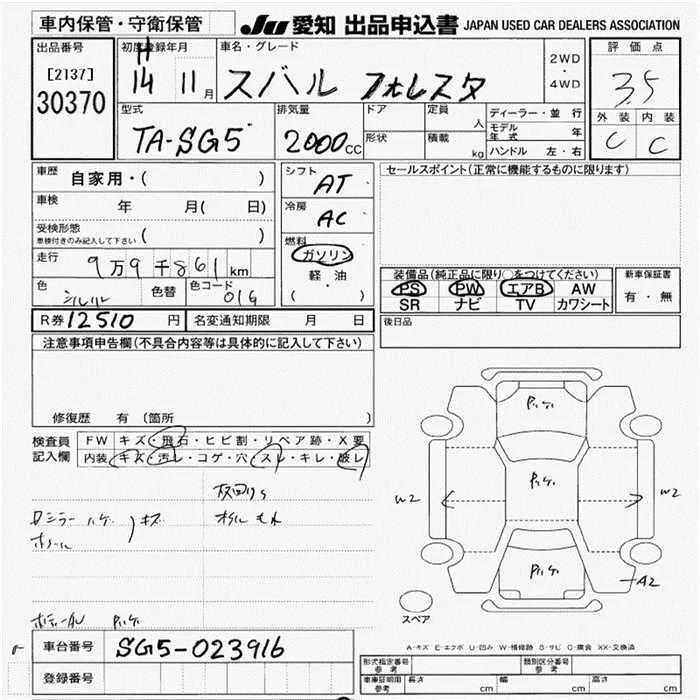 車内保管・守衛保管
JU 愛知 出品申込書 JAPAN USED CAR DEALERS ASSOCIATION
出品番号
[2137]
30370
初度登録年月
H
14 11月
車名・グレード
スバル フォレスタ
2WD
・
4WD
評価点
3.5
外装 内装
C C
型式
TA-SG5
排気量
2000 CC
ドア
形状
定員 人
積載 kg
ディーラー・並 行
モデル年式 年
ハンドル 左・右
車歴 自家用・( )
車検 年 月( 日)
受検形態
車検付きのみ記入して下さい ( )
走行 9万9千861 km
色 シルバー 色替 色コード 01G
シフト AT
冷房 AC
燃料
ガソリン
軽 油
( )
セールスポイント(正常に機能するものに限ります)
装備品(純正品に限り○をつけてください)
PS PW エアB AW
SR ナビ TV カワシート
新車保証書
有・無
R券 12510 円 名変通知期限 月 日
後日品
注意事項申告欄(不具合内容等は具体的に記入して下さい)
修復歴 有 (箇所 )
検査員
記入欄
FW キズ・飛石・ヒビ割・リペア跡・X要
内装 キズ・汚レ・コゲ・穴・スレ・キレ・破レ
W2
W2
A2
スペア
A-キズ E-エクボ U-凹み W-補修跡 S-サビ C-腐食 XX-交換済
車台番号 SG5-023916
登録番号
形式指定番号
参考
類別区分番号
参考
車庫証明用
参考
長さ cm 幅 cm 高さ cm